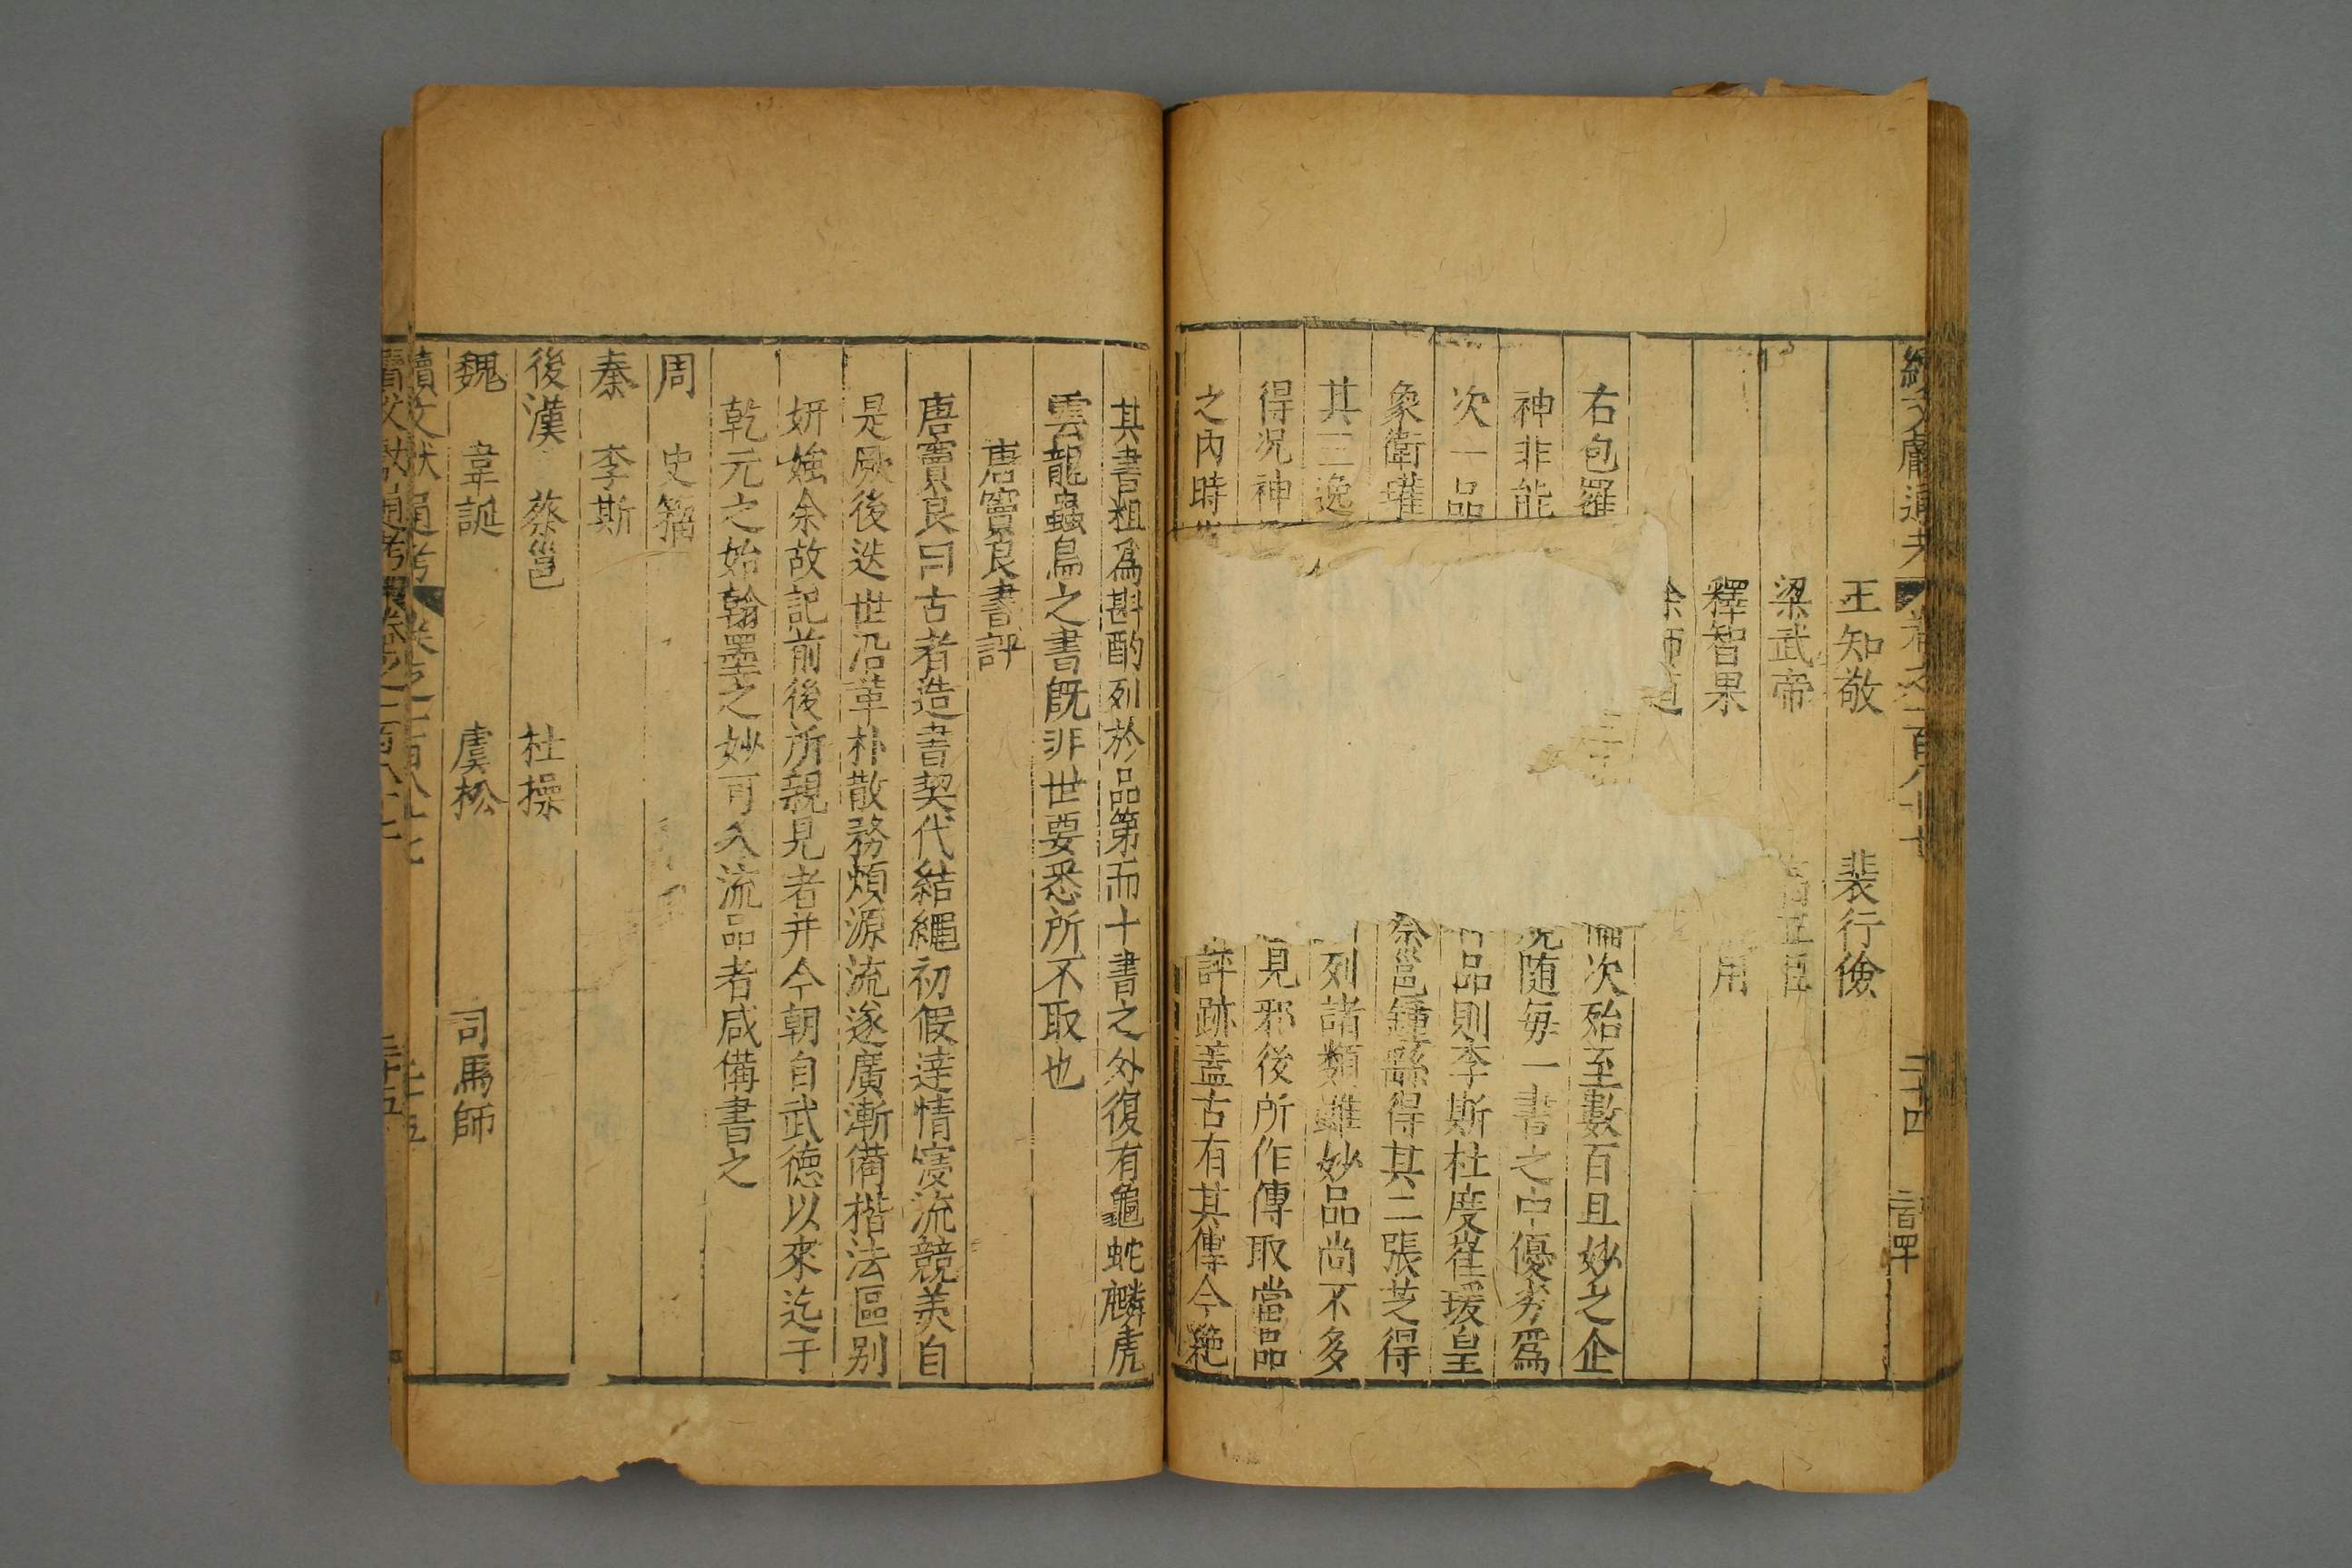 續文獻通考 卷之一百八十七 二十四
王知敬 裴行儉
梁武帝
釋智果
右包羅
次殆至數百且妙之企
神非能
隨毎一書之中優劣爲
次一品
品則李斯杜度崔瑗皇
象衛瓘
蔡邕鍾繇得其二張芝得
其三逸
列諸類雖妙品尚不多
得况神
見邪後所作傳取當品
之内時
評跡蓋古有其傳今絶
其書粗爲斟酌列於品第而十書之外復有龜蛇麟虎
雲龍蟲鳥之書旣非世要悉所不取也
唐竇臮書評
唐竇臮曰古者造書契代結繩初假達情寖流競美自
是厥後迭世沿革朴散務煩源流遂廣漸備楷法區别
妍媸余故記前後所親見者并今朝自武德以來迄于
乾元之始翰墨之妙可入流品者咸備書之
周 史籀
秦 李斯
後漢 蔡邕 杜操
魏 韋誕 虞松 司馬師